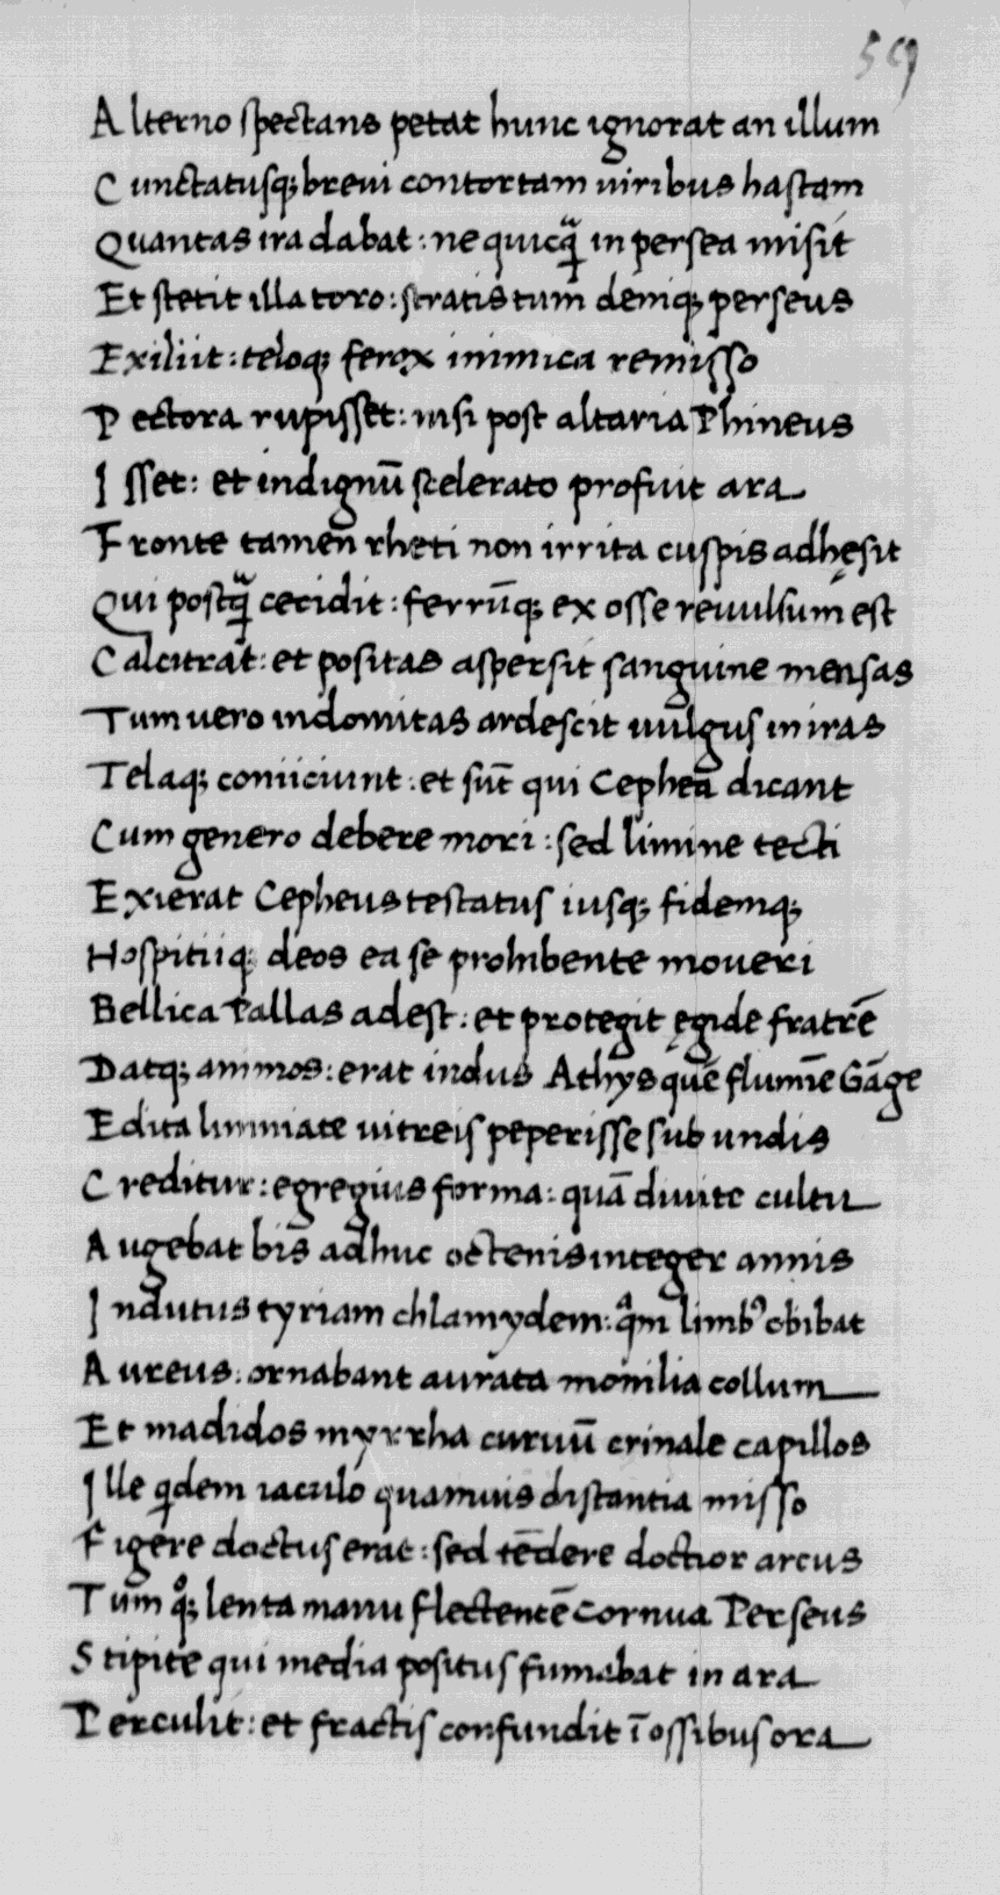 59
Alterno spectans petat hunc ignorat an illum
Cunctatusq; breui contortam uiribus hastam
Quantas ira dabat: nequicq̃ in persea misit
Et stetit illa toro: stratis tum deniq; perseus
Exiliit: teloq; ferox inimica remisso
Pectora rupisset: nisi post altaria Phineus
Isset: et indignū scelerato profuit ara
Fronte tamen rheti non irrita cuspis adhęsit
Qui postq̃ cecidit: ferrūq; ex osse reuulsum est
Calcitrat: et positas aspersit sanguine mensas
Tum uero indomitas ardescit uulgus in iras
Telaq; coniiciunt: et sūt qui Cepheā dicant
Cum genero debere mori: sed limine tecti
Exierat Cepheus testatus iusq; fidemq;
Hospitiiq; deos ea se prohibente moueri
Bellica Pallas adest: et protegit ęgide fratrē
Datq; animos: erat indus Athys quē flumīe Gāge
Edita limniate uitreis peperisse sub undis
Creditur: egregius forma: quā diuite cultu
Augebat bis adhuc octenis integer annis
Indutus tyriam chlamydem: q̃m limbꝰ obibat
Aureus: ornabant aurata monilia collum
Et madidos myrrha curuū crinale capillos
Ille qdem iaculo quamuis distantia misso
Figere doctus erat: sed tēdere doctior arcus
Tum qͦ; lenta manu flectentē cornua Perseus
Stipite qui media positus fumabat in ara
Perculit: et fractis confundit ī ossibus ora